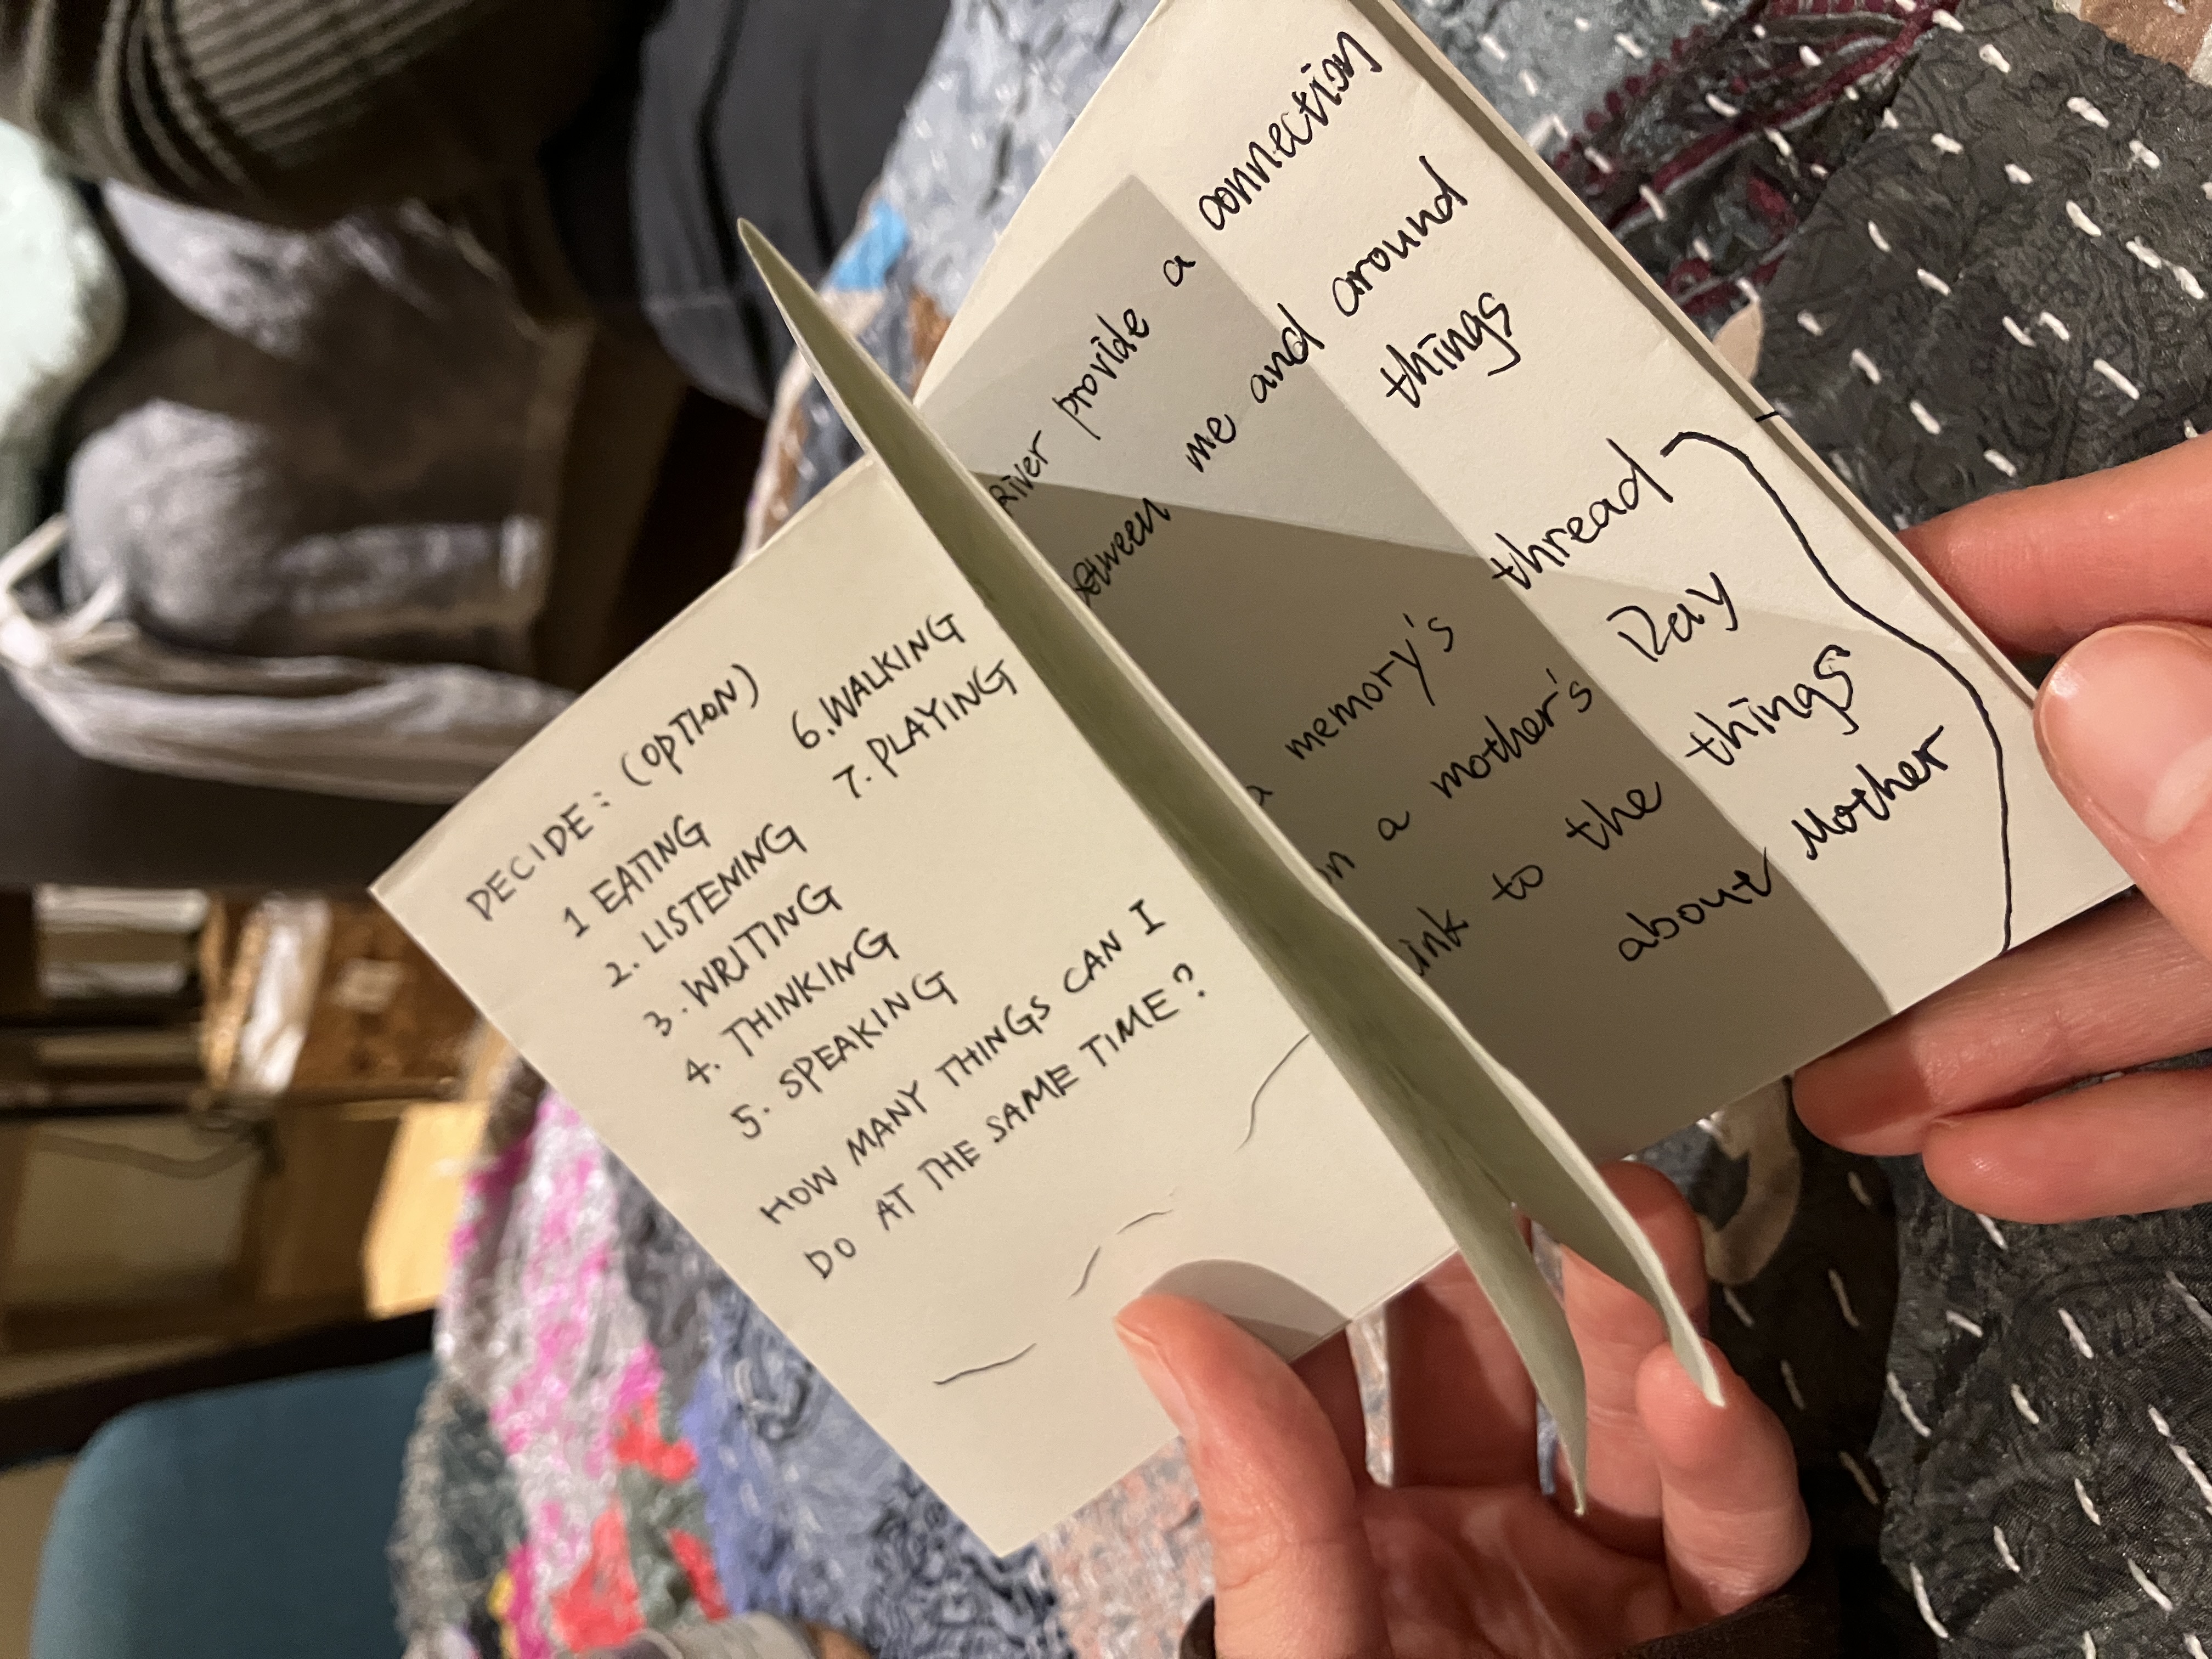 DECIDE: (OPTION)
1 EATING
2. LISTENING
3. WRITING
4. THINKING
5. SPEAKING
6. WALKING
7. PLAYING
HOW MANY THINGS CAN I
DO AT THE SAME TIME?
River provide a connection
between me and around
things
a memory's thread
in a mother's Day
link to the things
about Mother